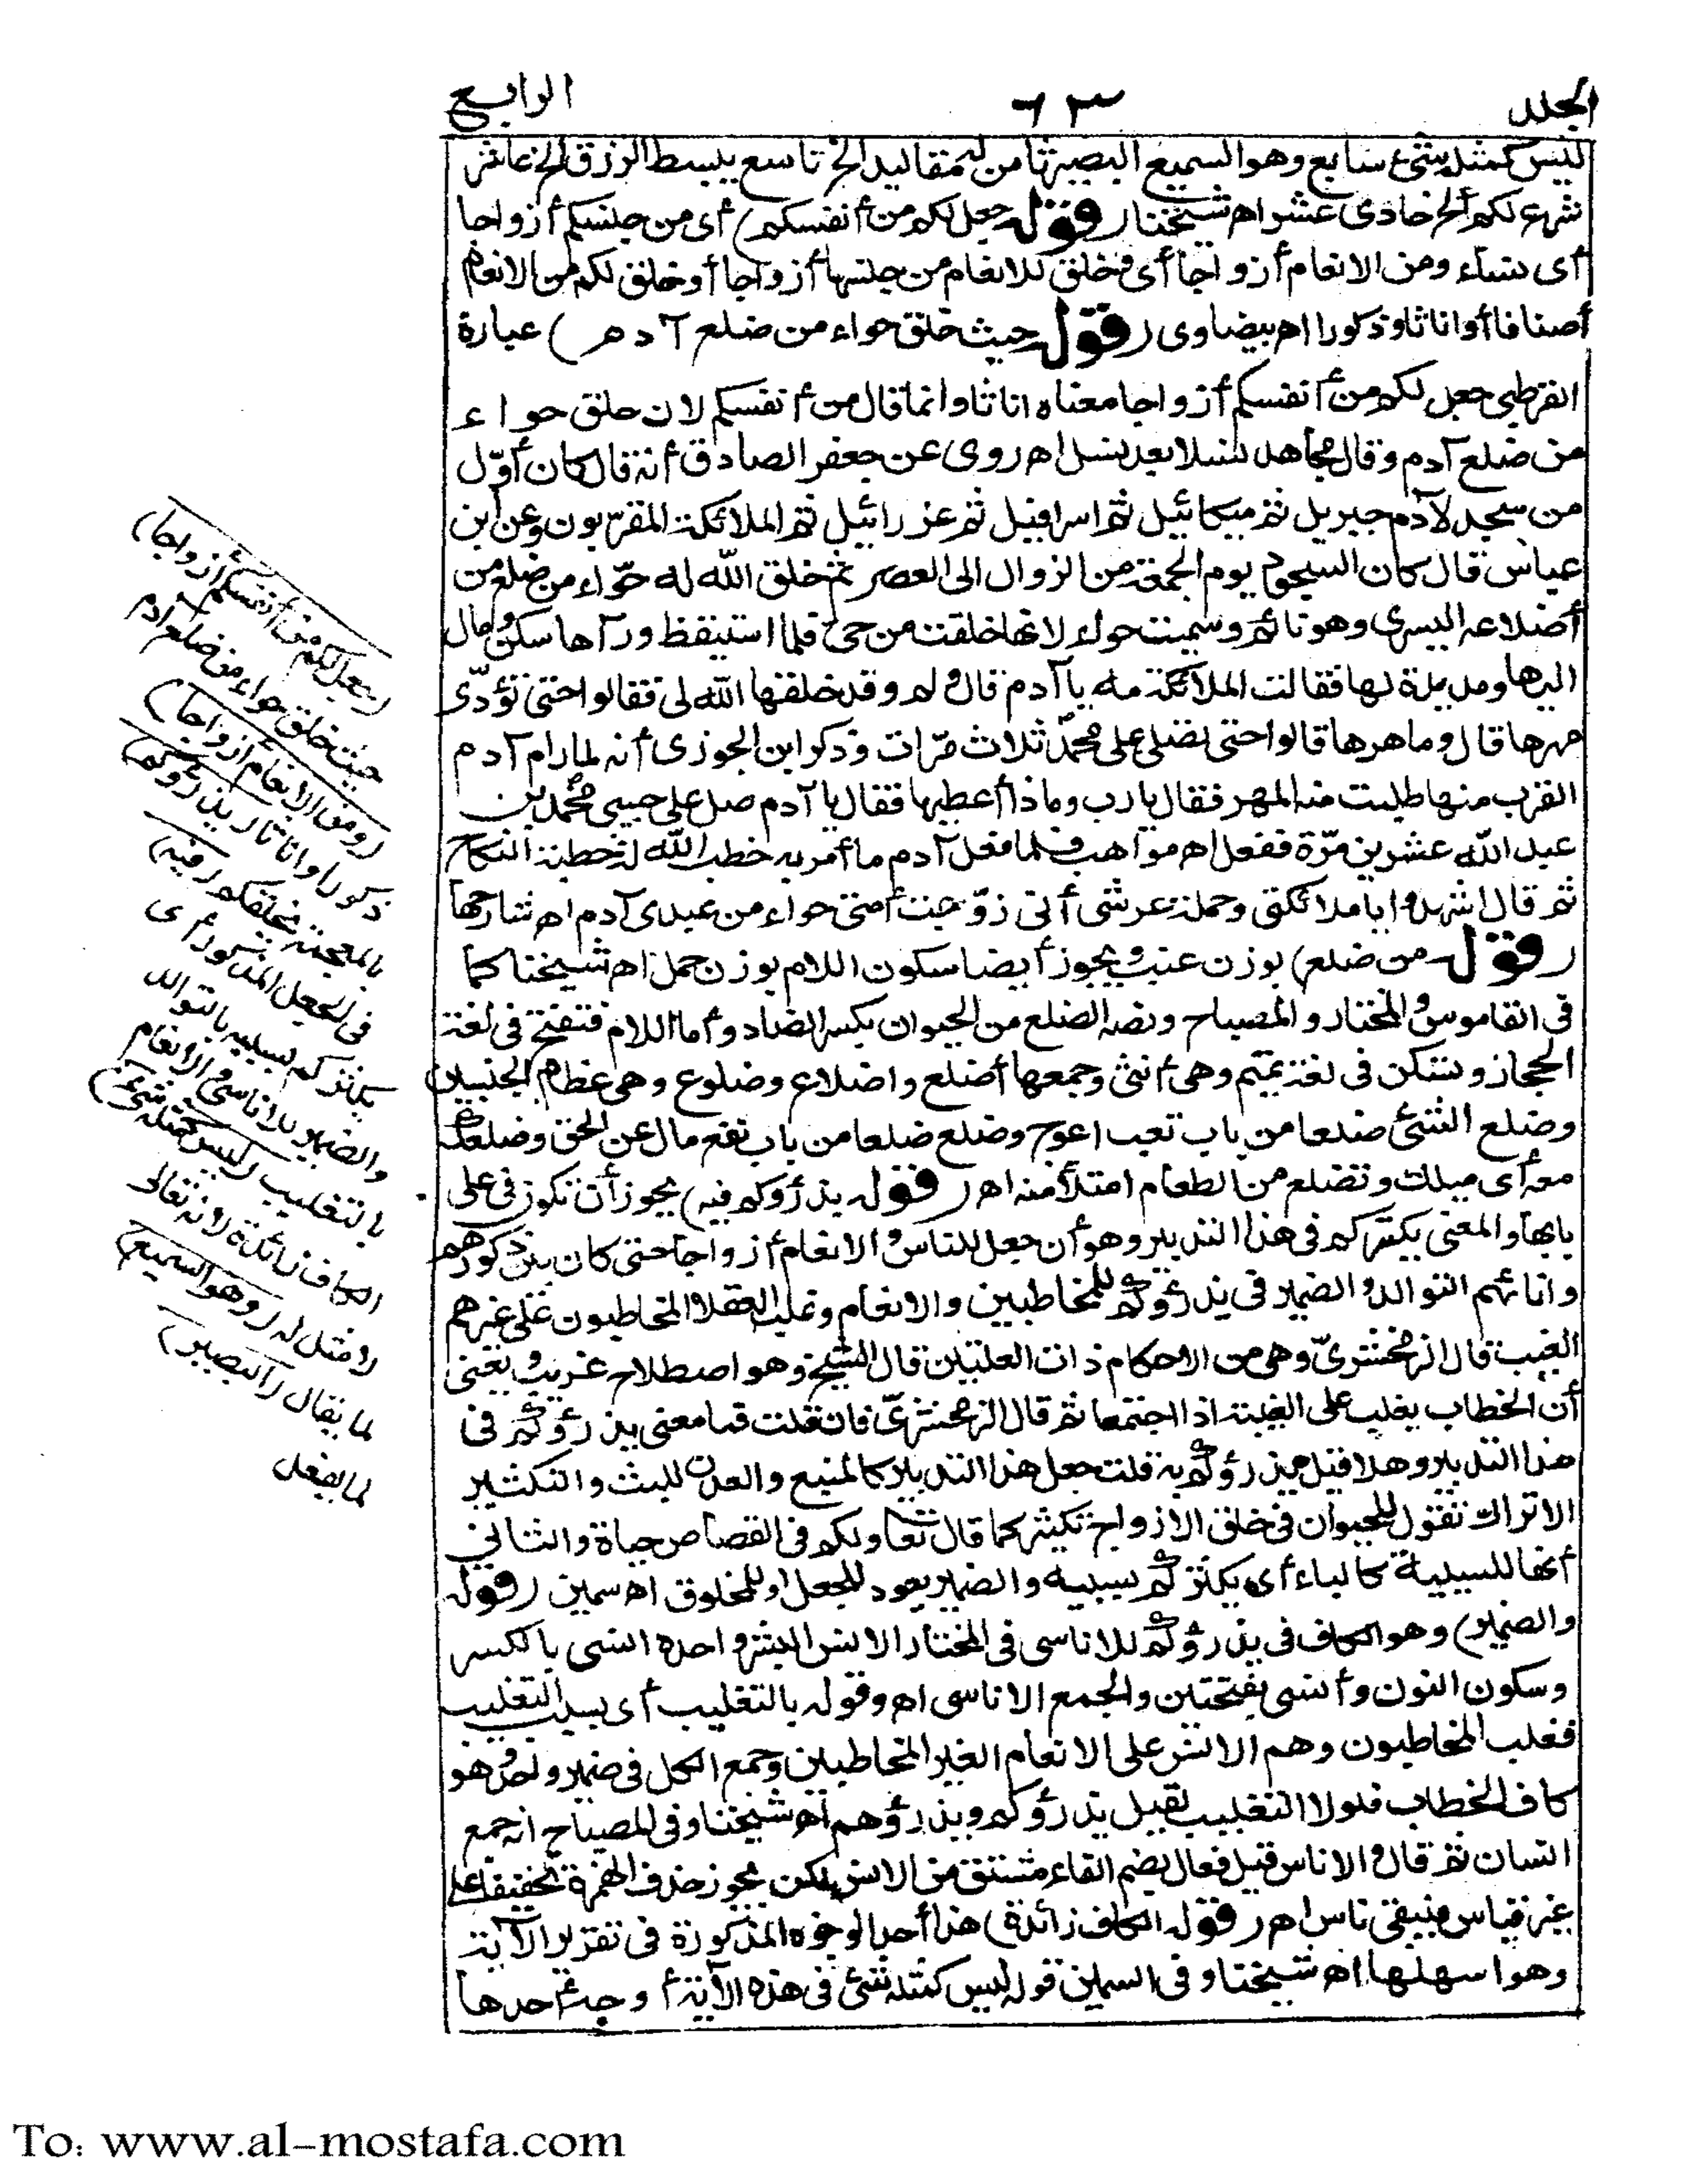 المجلد
٦٣
الرابع
ليس كمثله شئ سابع وهو السميع البصير ثامن له مقاليد الخ تاسع يبسط الرزق الخ عاشر
شرع لكم الخ حادى عشر اه شيخنا (قوله جعل لكم من أنفسكم) أى من جنسكم أزواجا
أى نساء ومن الانعام أزواجا أى وخلق للانعام من جنسها أزواجا أو خلق لكم من الانعام
أصنافا أو اناثا وذكورا اه بيضاوى (قوله حيث خلق حواء من ضلع آدم) عبارة
القرطبى جعل لكم من أنفسكم أزواجا معناه اناثا وانما قال من أنفسكم لان خلق حواء
من ضلع آدم وقال مجاهد نسلا بعد نسل اه روى عن جعفر الصادق أنه قال كان أوّل
من سجد لآدم جبريل ثم ميكائيل ثم اسرافيل ثم عزرائيل ثم الملائكة المقرّبون وعن ابن
عباس قال كان السجود يوم الجمعة من الزوال الى العصر ثم خلق الله له حوّاء من ضلع من
أضلاعه اليسرى وهو نائم وسميت حواء لانها خلقت من حىّ فلما استيقظ ورآها سكن ومال
اليها ومد يده لها فقالت الملائكة مه يا آدم قال ولم وقد خلقها الله لى فقالوا حتى تؤدّى
مهرها قال وما مهرها قالوا حتى تصلى على محمد ثلاث مرّات وذكر ابن الجوزى أنه لما رام آدم
القرب منها طلبت منه المهر فقال يا رب وماذا أعطيها فقال يا آدم صل على حبيبى محمد بن
عبد الله عشرين مرّة ففعل اه مواهب فلما فعل آدم ما أمر به خطب الله له خطبة النكاح
ثم قال اشهدوا يا ملائكتى وحملة عرشى أنى زوّجت أمتى حواء من عبدى آدم اه شارحها
(قوله من ضلع) بوزن عنب ويجوز أيضا سكون اللام بوزن حمل اه شيخنا كما
فى القاموس والمختار والمصباح ونصه الضلع من الحيوان بكسر الضاد وأما اللام فتفتح فى لغة
الحجاز وتسكن فى لغة تميم وهى أنثى وجمعها أضلع واضلاع وضلوع وهى عظام الجنبين
وضلع الشئ ضلعا من باب تعب اعوج وضلع ضلعا من باب نفع مال عن الحق وضلعك
معه أى ميلك وتضلع من الطعام امتلأ منه اه (قوله يذرؤكم فيه) يجوز أن تكون فى على
بابها والمعنى يكثركم فى هذا التدبير وهو أن جعل للناس والانعام أزواجا حتى كان بين ذكورهم
واناثهم التوالد والضمير فى يذرؤكم للمخاطبين والانعام وغلب العقلا المخاطبون على غيرهم
الغيب قال الزمخشرىّ وهى من الاحكام ذات العلتين قال الشيخ وهو اصطلاح غريب ويعنى
أن الخطاب يغلب على الغيبة اذا اجتمعا ثم قال الزمخشرىّ فان قلت فما معنى يذرؤكم فى
هذا التدبير وهلا قيل يذرؤكم به قلت جعل هذا التدبير كالمنبع والمعدن للبث والتكثير
الا تراك تقول للحيوان فى خلق الازواج تكثير كما قال تعا ولكم فى القصاص حياة والثانى
أنها للسببية كالباء أى يكثركم بسببه والضمير يعود للجعل او للمخلوق اه سمين (قوله
والضمير) وهو الكاف فى يذرؤكم للاناسى فى المختار الانس البشر واحده انسى بالكسر
وسكون النون وأنسى بفتحتين والجمع الاناسى اه وقوله بالتغليب أى بسبب التغليب
فغلب المخاطبون وهم الانس على الانعام الغير المخاطبين وجمع الكل فى ضمير واحد وهو
كاف الخطاب فلولا التغليب لقيل يذرؤكم ويذرؤهم اه شيخنا وفى المصباح انه جمع
انسان ثم قال والاناس قيل فعال بضم الفاء مشتق من الانس لكن يجوز حذف الهمزة تخفيفا على
غير قياس فيبقى ناس اه (قوله الكاف زائدة) هذا أحد الوجوه المذكورة فى تقرير الآية
وهو اسهلها اه شيخنا وفى السمين قوله ليس كمثله شئ فى هذه الآية أوجه أحدها
(جعل لكم من أنفسكم أزواجا)
حيث خلق حواء من ضلع آدم
(ومن الانعام أزواجا)
ذكورا واناثا (يذرؤكم)
بالمعجمة يخلقكم (فيه)
فى الجعل المذكور أى
يكثركم بسببه بالتوالد
والضمير للاناسى والانعام
بالتغليب (ليس كمثله شئ)
الكاف زائدة لانه تعالى
لا مثل له (وهو السميع)
لما يقال (البصير)
لما يفعل
To: www.al-mostafa.com